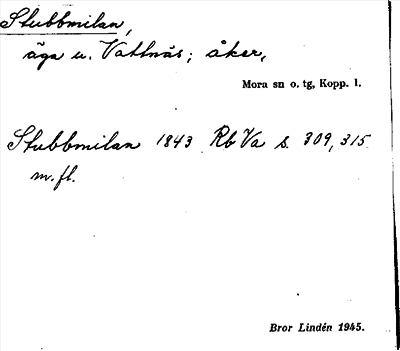 Stubbmilan,
äga u. Vattnäs; åker,
Mora sn o. tg, Kopp. l.
Stubbmilan 1843 Rb Va s. 309, 315
m. fl.
Bror Lindén 1945.